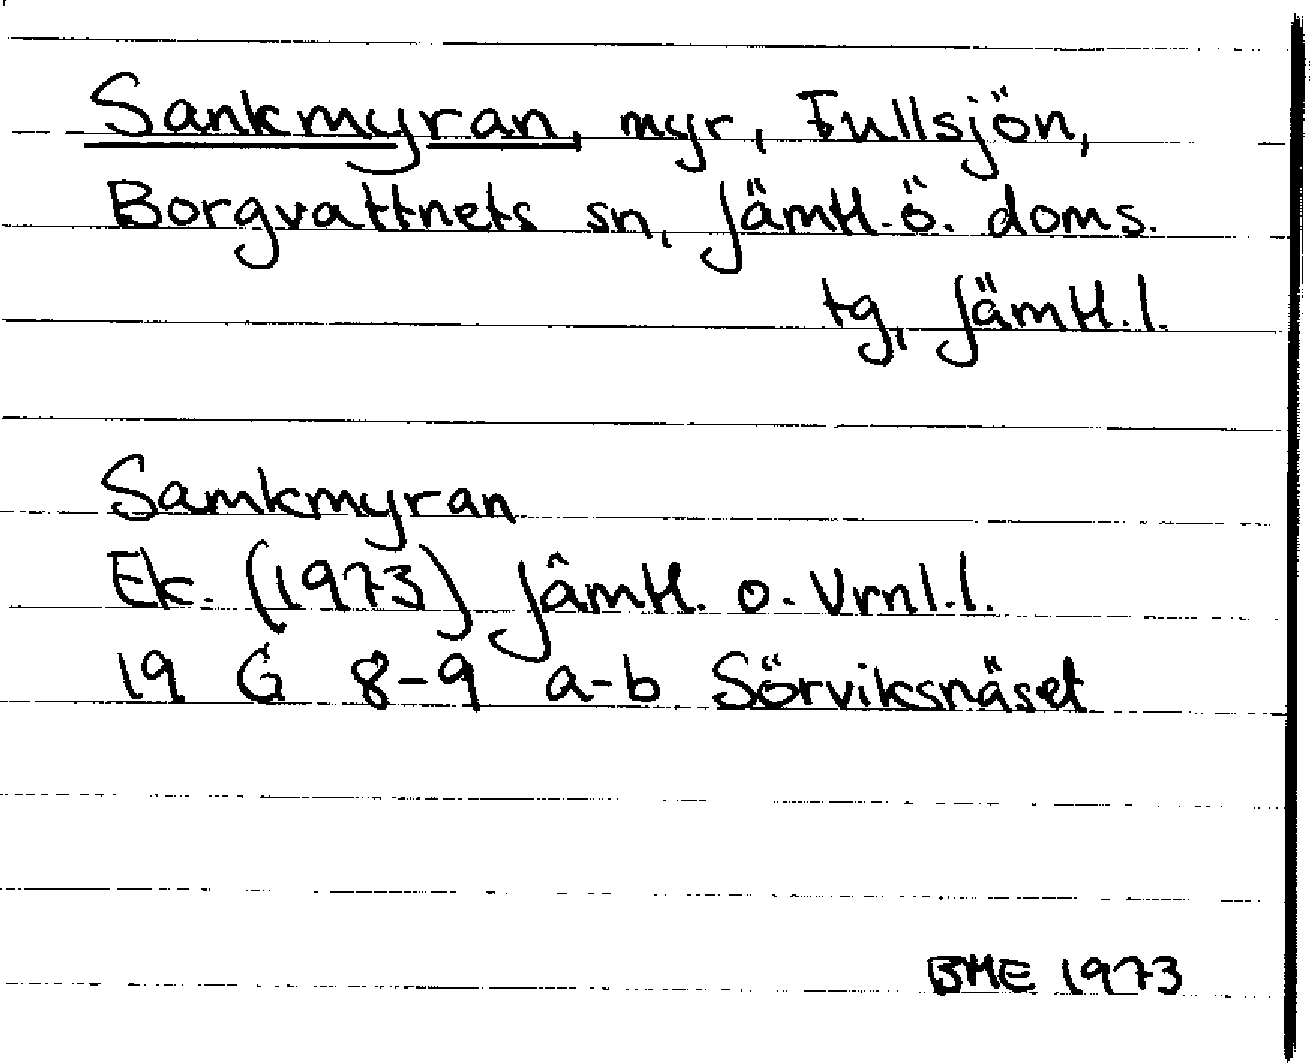 Sankmyran, myr, Fullsjön,
Borgvattnets sn, Jämtl. ö. doms.
tg, Jämtl. l.
Samkmyran
Ek. (1973) Jämtl. o. Vrnl. l.
19 G 8-9 a-b Sörviksnäset
BME 1973